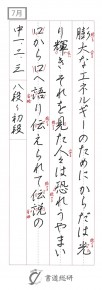 7月
膨大なエネルギーのためにからだは光
り輝き、それを見た人々は恐れうやまい
口から口へ語り伝えられて伝説の
中一・二・三 八段〜初段
書道総研